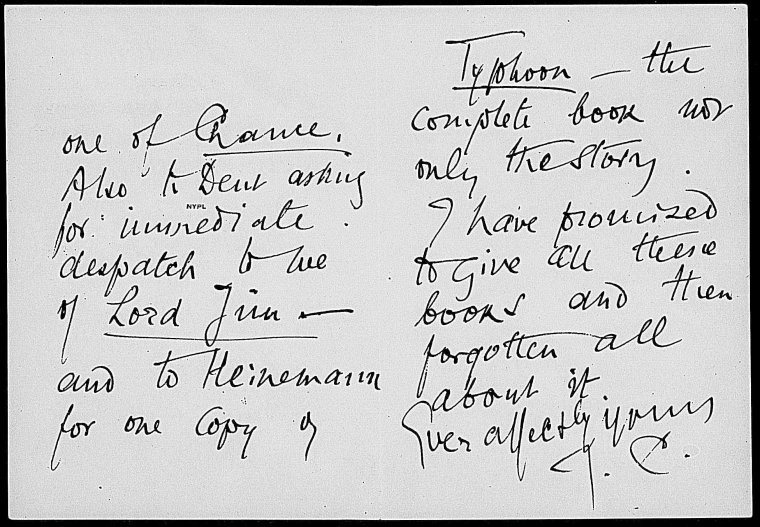 one of Chance.
Also to Dent asking
NYPL
for immediate
despatch to me
of Lord Jim —
and to Heinemann
for one copy of
Typhoon — the
complete book not
only the story.
I have promised
to give all these
books and then
forgotten all
about it
Ever affectly yours
J. C.